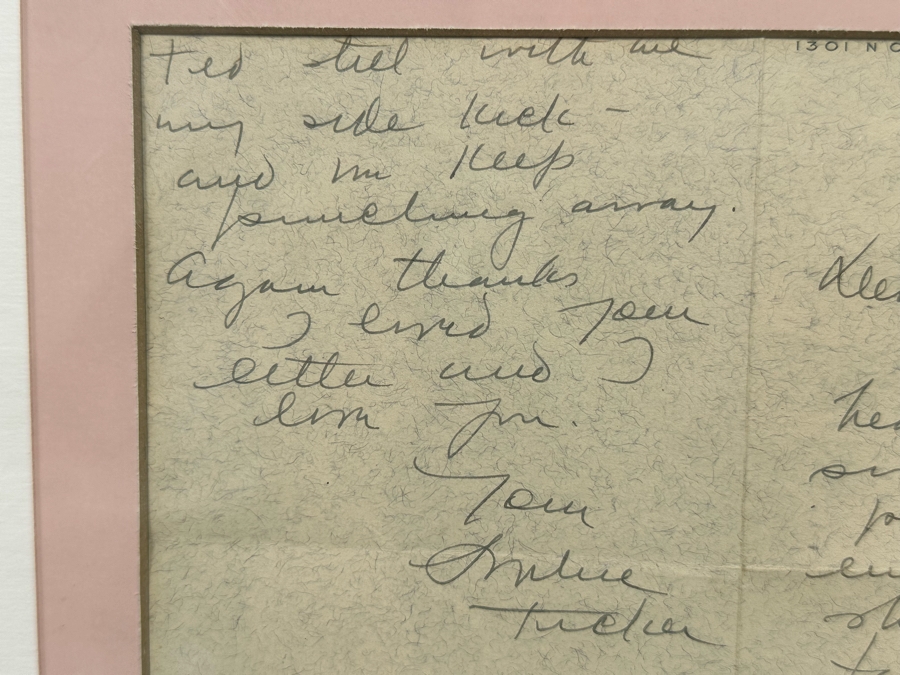 Ted still with me
my side kick -
and I'm keep
punching away.
Again thanks
I loved your
letter and I
love you.
Your
Sophie
Tucker
1301 N